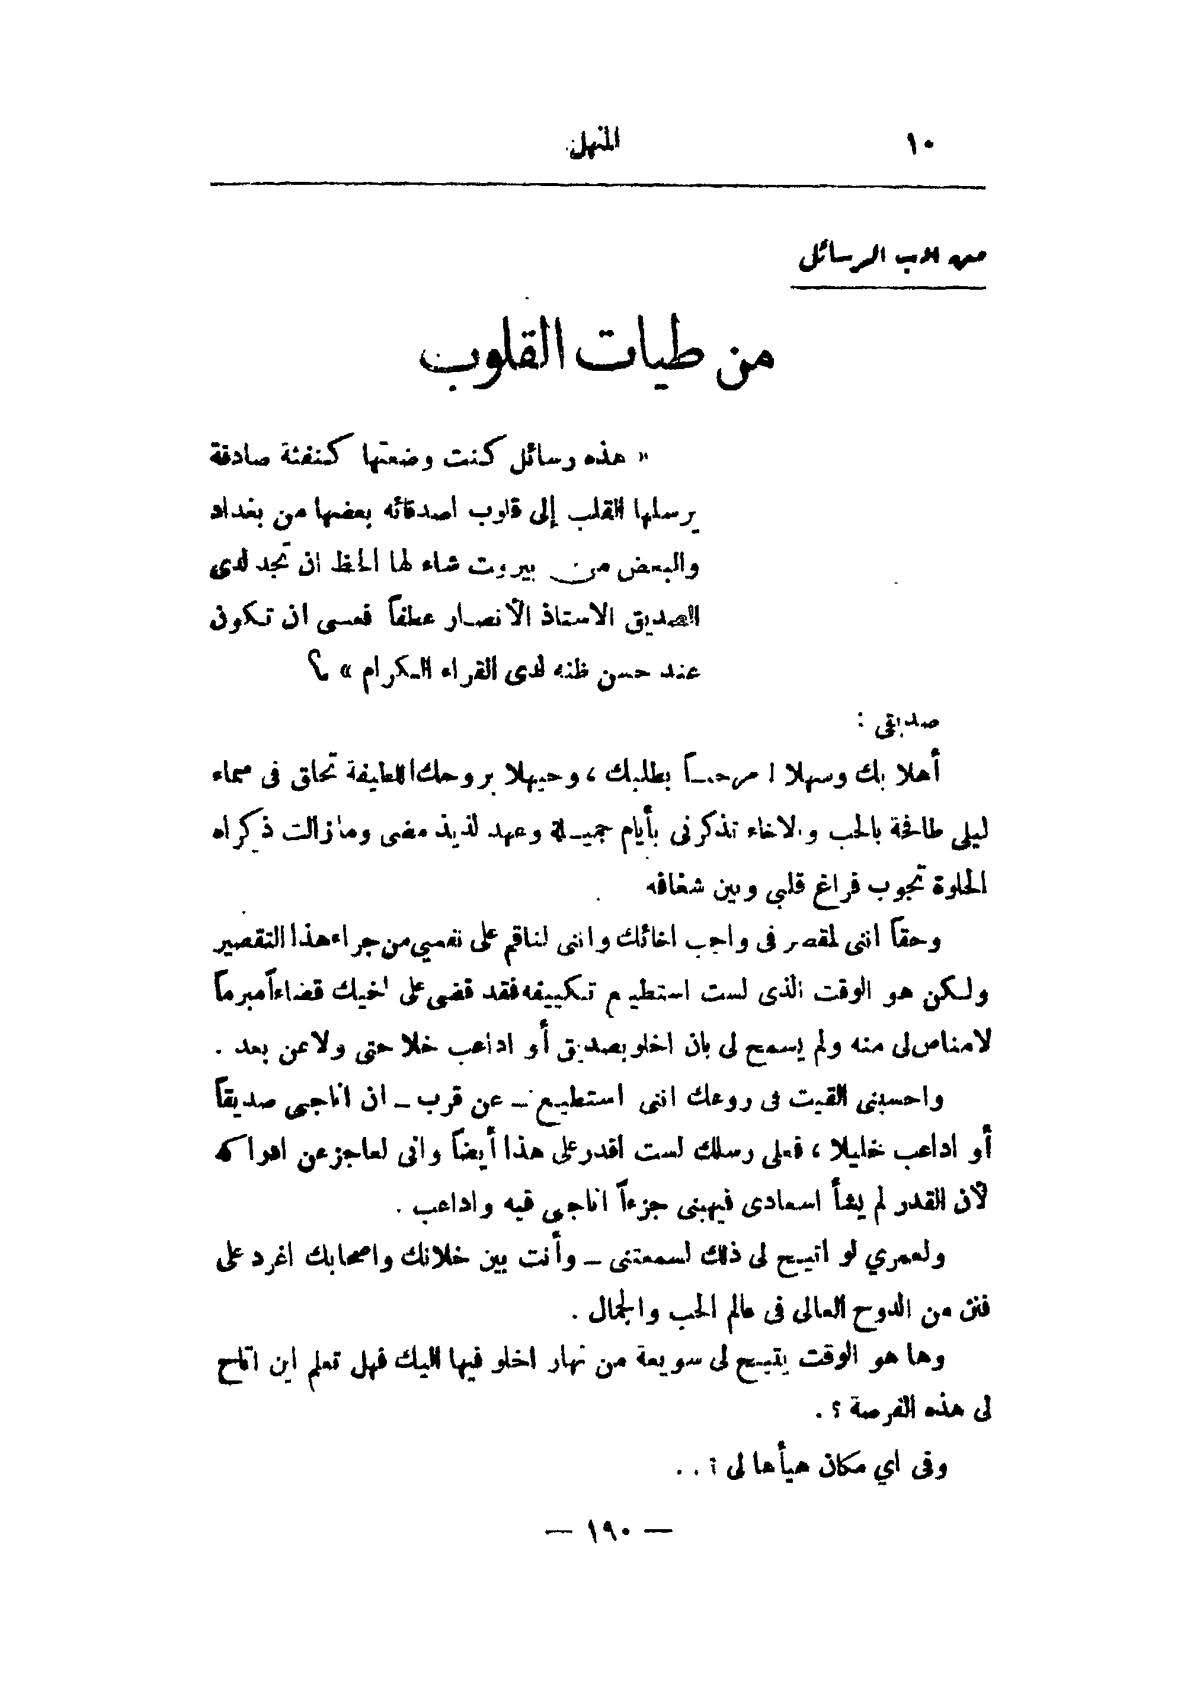 ١٠
المنهل
من ادب الرسائل
من طيات القلوب
« هذه رسائل كنت وضعتها كنفثة صادقة
يرسلها القلب إلى قلوب اصدقائه بعضها من بغداد
والبعض من بيروت شاء لها الحظ ان تجد لدى
الصديق الاستاذ الأنصار عطفاً فعسى ان تكون
عند حسن ظنه لدى القراء الكرام » ؟
صديقى :
أهلا بك وسهلا ! مرحباً بطلبك ، وحيهلا بروحك اللطيفة تحلق فى سماء
ليلى طافحة بالحب والاخاء تذكرنى بأيام جميلة وعهد لذيذ مضى ومازالت ذكراه
الحلوة تجوب فراغ قلبى وبين شغافه
وحقاً اننى لمقصر فى واجب اخائك واننى لناقم على نفسي من جراء هذا التقصير
ولكن هو الوقت الذى لست استطيع تكييفه فقد قضى على اخيك قضاءاً مبرماً
لامناص لى منه ولم يسمح لى بان اخلو بصديق أو اداعب خلا حتى ولا عن بعد .
واحسبنى القيت فى روعك اننى استطيع ــ عن قرب ــ ان اناجى صديقاً
أو اداعب خليلا ، فعلى رسلك لست اقدر على هذا أيضاً وانى لعاجز عن ادراكه
لأن القدر لم يشأ اسعادى فيهبنى جزءاً اناجى فيه واداعب .
ولعمري لو اتيح لى ذلك لسمعتنى ــ وأنت بين خلانك واصحابك اغرد على
فنن من الدوح العالى فى عالم الحب والجمال .
وها هو الوقت يتيح لى سويعة من نهار اخلو فيها اليك فهل تعلم اين اتاح
لى هذه الفرصة ؟ .
وفى اي مكان هيأها لى ؟ . .
— ١٩٠ —